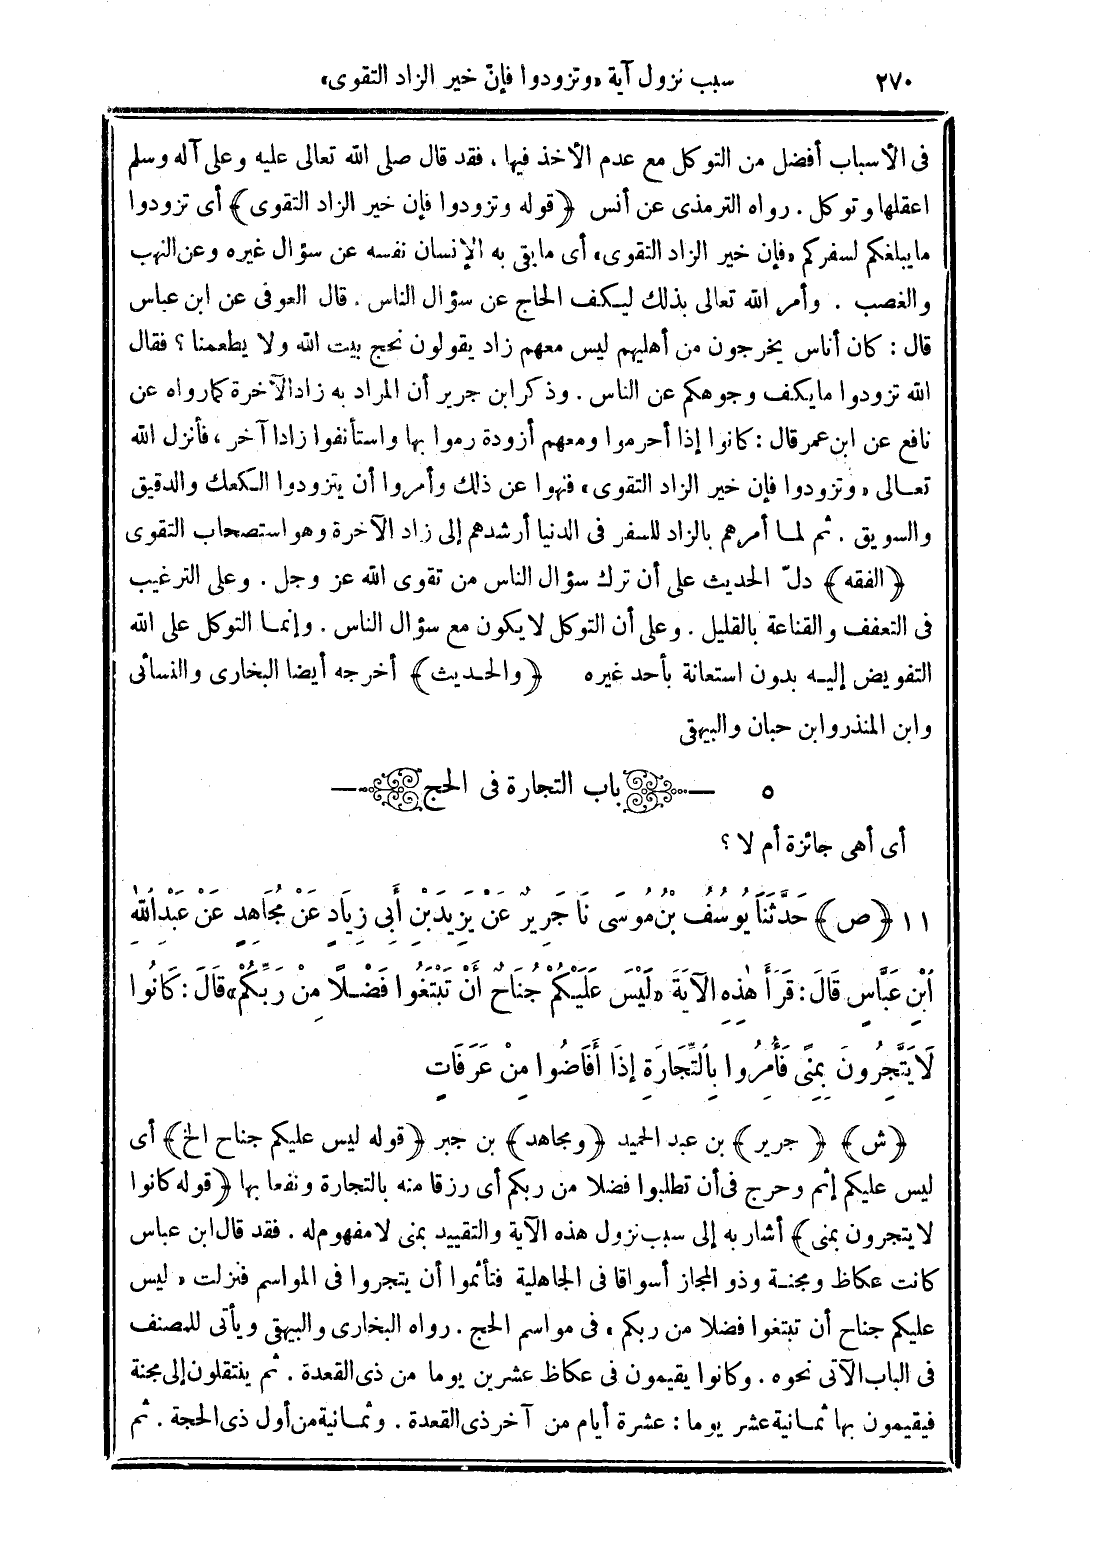 ٢٧٠ سبب نزول آية «وتزودوا فإنّ خير الزاد التقوى»
فى الأسباب أفضل من التوكل مع عدم الأخذ فيها، فقد قال صلى الله تعالى عليه وعلى آله وسلم
اعقلها وتوكل. رواه الترمذى عن أنس ﴿قوله وتزودوا فإن خير الزاد التقوى﴾ أى تزودوا
مايبلغكم لسفركم «فإن خير الزاد التقوى» أى مايقى به الإنسان نفسه عن سؤال غيره وعن النهب
والغصب . وأمر الله تعالى بذلك ليكف الحاج عن سؤال الناس. قال العوفى عن ابن عباس
قال: كان أناس يخرجون من أهليهم ليس معهم زاد يقولون نحج بيت الله ولا يطعمنا؟ فقال
الله تزودوا مايكف وجوهكم عن الناس. وذكر ابن جرير أن المراد به زاد الآخرة كمارواه عن
نافع عن ابن عمر قال: كانوا إذا أحرموا ومعهم أزودة رموا بها واستأنفوا زادا آخر، فأنزل الله
تعالى «وتزودوا فإن خير الزاد التقوى» فنهوا عن ذلك وأمروا أن يتزودوا الكعك والدقيق
والسويق. ثم لما أمرهم بالزاد للسفر فى الدنيا أرشدهم إلى زاد الآخرة وهو استصحاب التقوى
﴿الفقه﴾ دلّ الحديث على أن ترك سؤال الناس من تقوى الله عز وجل. وعلى الترغيب
فى التعفف والقناعة بالقليل. وعلى أن التوكل لايكون مع سؤال الناس. وإنما التوكل على الله
التفويض إليه بدون استعانة بأحد غيره ﴿والحديث﴾ أخرجه أيضا البخارى والنسائى
وابن المنذر وابن حبان والبيهقى
٥ — باب التجارة فى الحج —
أى أهى جائزة أم لا؟
١١ ﴿ص﴾ حَدَّثَنَا يُوسُفُ بْنُ مُوسَى نَا جَرِيرٌ عَنْ يَزِيدَ بْنِ أَبِى زِيَادٍ عَنْ مُجَاهِدٍ عَنْ عَبْدِ اللهِ
ابْنِ عَبَّاسٍ قَالَ: قَرَأَ هٰذِهِ الآيَةَ «لَيْسَ عَلَيْكُمْ جُنَاحٌ أَنْ تَبْتَغُوا فَضْلًا مِنْ رَبِّكُمْ» قَالَ: كَانُوا
لَا يَتَّجِرُونَ بِمِنًى فَأُمِرُوا بِالتِّجَارَةِ إِذَا أَفَاضُوا مِنْ عَرَفَاتٍ
﴿ش﴾ ﴿جرير﴾ بن عبد الحميد ﴿ومجاهد﴾ بن جبر ﴿قوله ليس عليكم جناح الخ﴾ أى
ليس عليكم إثم وحرج فى أن تطلبوا فضلا من ربكم أى رزقا منه بالتجارة ونفعا بها ﴿قوله كانوا
لايتجرون بمنى﴾ أشار به إلى سبب نزول هذه الآية والتقييد بمنى لامفهوم له. فقد قال ابن عباس
كانت عكاظ ومجنة وذو المجاز أسواقا فى الجاهلية فتأثموا أن يتجروا فى المواسم فنزلت «ليس
عليكم جناح أن تبتغوا فضلا من ربكم» فى مواسم الحج. رواه البخارى والبيهقى ويأتى للمصنف
فى الباب الآتى نحوه. وكانوا يقيمون فى عكاظ عشرين يوما من ذى القعدة. ثم ينتقلون إلى مجنة
فيقيمون بها ثمانية عشر يوما: عشرة أيام من آخر ذى القعدة. وثمانية من أول ذى الحجة. ثم